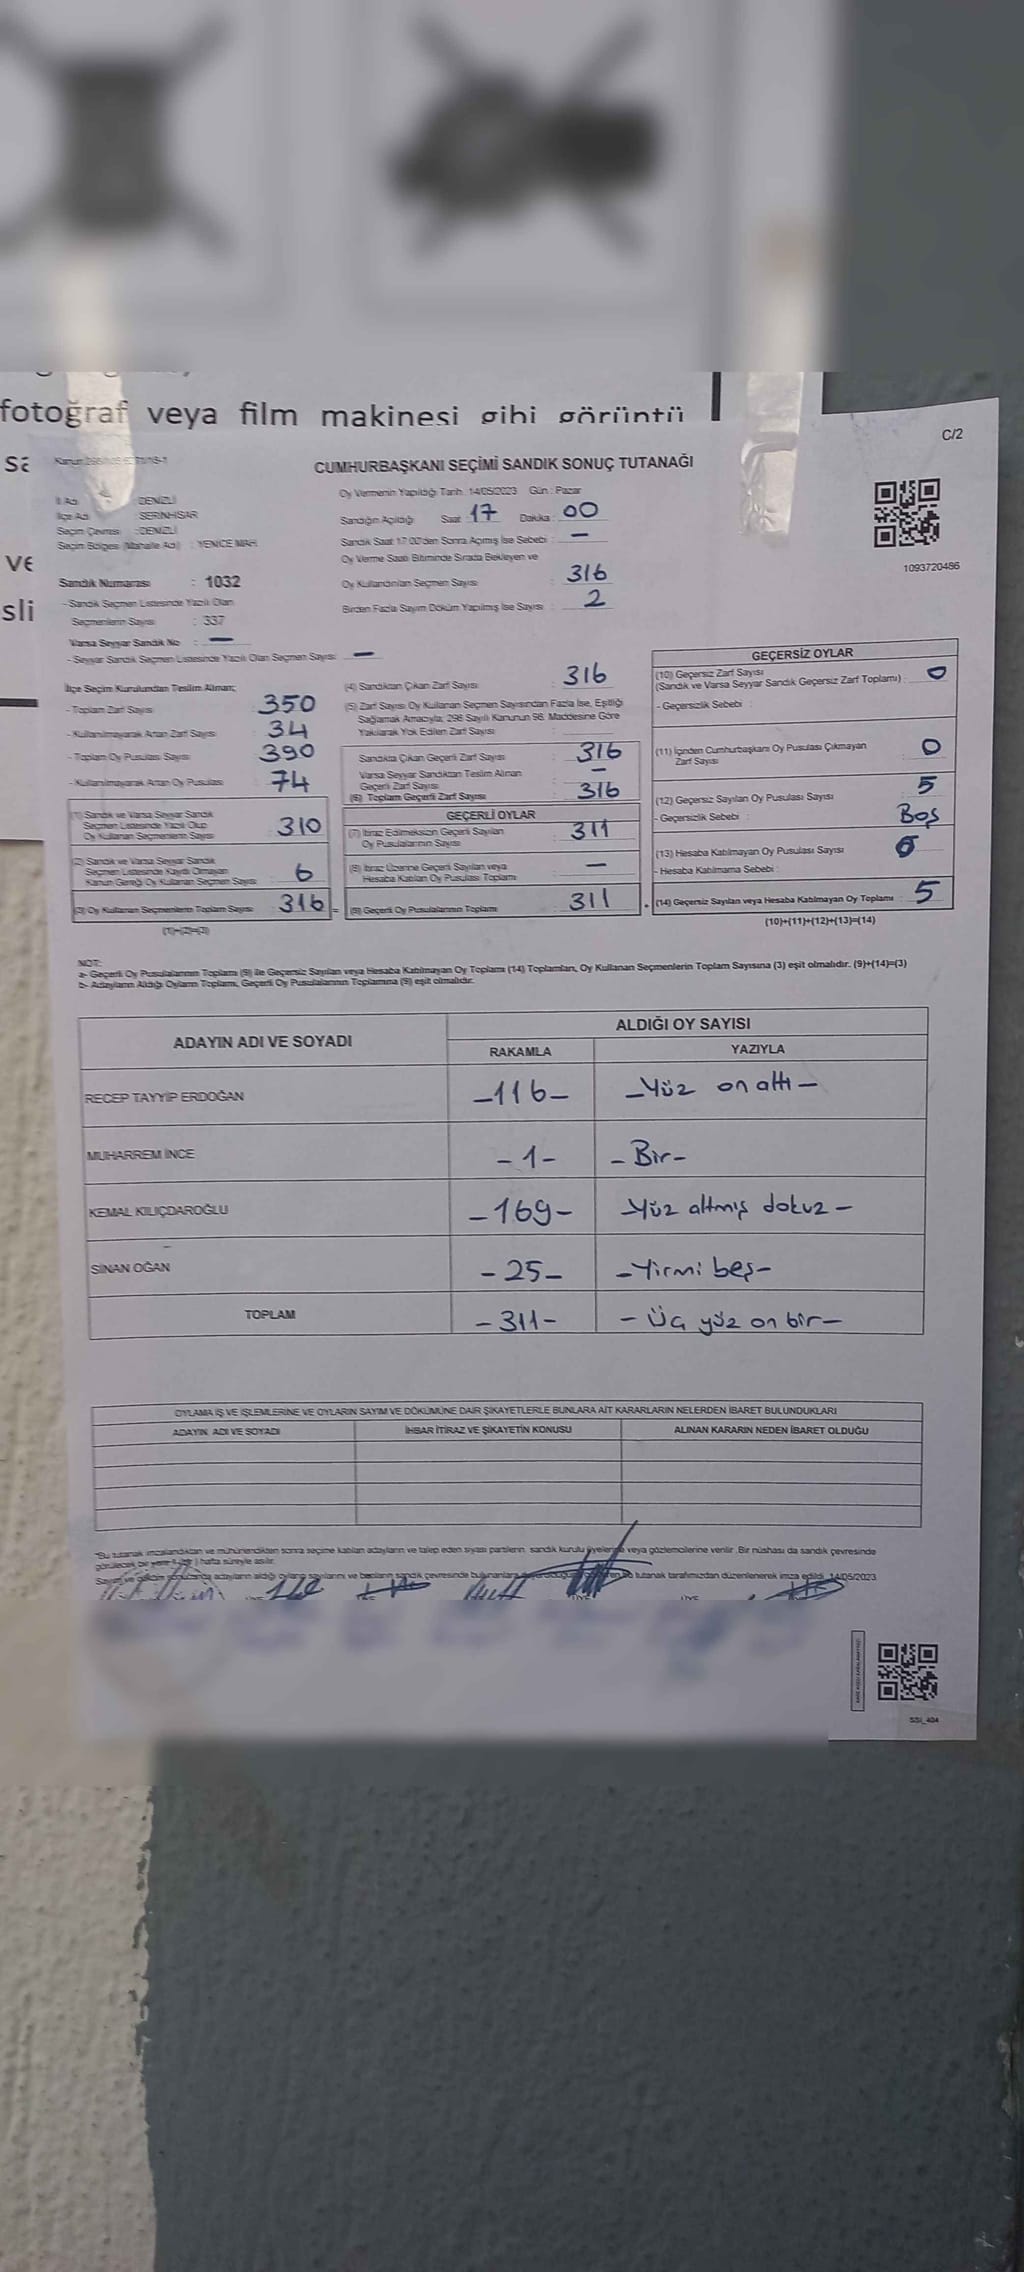 fotoğraf veya film makinesi gibi görüntü
sa
ve
sli
C/2
CUMHURBAŞKANI SEÇİMİ SANDIK SONUÇ TUTANAĞI
İl Adı : DENİZLİ
İlçe Adı : SERİNHİSAR
Seçim Çevresi : DENİZLİ
Seçim Bölgesi (Mahalle Adı) : YENİCE MAH.
Sandık Numarası : 1032
- Sandık Seçmen Listesinde Yazılı Olan
Seçmenlerin Sayısı : 337
Varsa Seyyar Sandık No : —
- Seyyar Sandık Seçmen Listesinde Yazılı Olan Seçmen Sayısı : —
Oy Vermenin Yapıldığı Tarih : 14/05/2023 Gün : Pazar
Sandığın Açıldığı Saat : 17 Dakika : 00
Sandık Saat 17:00'den Sonra Açılmış İse Sebebi : —
Oy Verme Saati Bitiminde Sırada Bekleyen ve
Oy Kullandırılan Seçmen Sayısı : 316
Birden Fazla Sayım Döküm Yapılmış İse Sayısı : 2
1093720486
İlçe Seçim Kurulundan Teslim Alınan;
- Toplam Zarf Sayısı : 350
- Kullanılmayarak Artan Zarf Sayısı : 34
- Toplam Oy Pusulası Sayısı : 390
- Kullanılmayarak Artan Oy Pusulası : 74
(1) Sandık ve Varsa Seyyar Sandık
Seçmen Listesinde Yazılı Olup
Oy Kullanan Seçmenlerin Sayısı : 310
(2) Sandık ve Varsa Seyyar Sandık
Seçmen Listesinde Kayıtlı Olmayan
Kanun Gereği Oy Kullanan Seçmen Sayısı : 6
(3) Oy Kullanan Seçmenlerin Toplam Sayısı : 316 =
(1)+(2)=(3)
(4) Sandıktan Çıkan Zarf Sayısı : 316
(5) Zarf Sayısı Oy Kullanan Seçmen Sayısından Fazla İse, Eşitliği
Sağlamak Amacıyla; 298 Sayılı Kanunun 98. Maddesine Göre
Yakılarak Yok Edilen Zarf Sayısı :
Sandıkta Çıkan Geçerli Zarf Sayısı : 316
Varsa Seyyar Sandıktan Teslim Alınan
Geçerli Zarf Sayısı : —
(6) Toplam Geçerli Zarf Sayısı : 316
GEÇERLİ OYLAR
(7) İtiraz Edilmeksizin Geçerli Sayılan
Oy Pusulalarının Sayısı : 311
(8) İtiraz Üzerine Geçerli Sayılan veya
Hesaba Katılan Oy Pusulası Toplamı : —
(9) Geçerli Oy Pusulalarının Toplamı : 311
GEÇERSİZ OYLAR
(10) Geçersiz Zarf Sayısı
(Sandık ve Varsa Seyyar Sandık Geçersiz Zarf Toplamı) : 0
- Geçersizlik Sebebi :
(11) İçinden Cumhurbaşkanı Oy Pusulası Çıkmayan
Zarf Sayısı : 0
(12) Geçersiz Sayılan Oy Pusulası Sayısı : 5
- Geçersizlik Sebebi : Boş
(13) Hesaba Katılmayan Oy Pusulası Sayısı : 0
- Hesaba Katılmama Sebebi :
(14) Geçersiz Sayılan veya Hesaba Katılmayan Oy Toplamı : 5
(10)+(11)+(12)+(13)=(14)
NOT:
a- Geçerli Oy Pusulalarının Toplamı (9) ile Geçersiz Sayılan veya Hesaba Katılmayan Oy Toplamı (14) Toplamları, Oy Kullanan Seçmenlerin Toplam Sayısına (3) eşit olmalıdır. (9)+(14)=(3)
b- Adayların Aldığı Oyların Toplamı, Geçerli Oy Pusulalarının Toplamına (9) eşit olmalıdır.
ADAYIN ADI VE SOYADI ALDIĞI OY SAYISI
RAKAMLA YAZIYLA
RECEP TAYYİP ERDOĞAN -116- -Yüz on altı-
MUHARREM İNCE -1- -Bir-
KEMAL KILIÇDAROĞLU -169- -Yüz altmış dokuz-
SİNAN OĞAN -25- -Yirmi beş-
TOPLAM -311- -Üç yüz on bir-
OYLAMA İŞ VE İŞLEMLERİNE VE OYLARIN SAYIM VE DÖKÜMÜNE DAİR ŞİKAYETLERLE BUNLARA AİT KARARLARIN NELERDEN İBARET BULUNDUKLARI
ADAYIN ADI VE SOYADI İHBAR İTİRAZ VE ŞİKAYETİN KONUSU ALINAN KARARIN NEDEN İBARET OLDUĞU
*Bu tutanak imzalandıktan ve mühürlendikten sonra seçime katılan adayların ve talep eden siyasi partilerin, sandık kurulu üyelerine veya gözlemcilerine verilir. Bir nüshası da sandık çevresinde
görülecek bir yere 1 hafta süreyle asılır.
adayların aldığı sandık çevresinde bulunanlara tutanak tarafımızdan düzenlenerek imza edildi. 14/05/2023
ÜYE ÜYE ÜYE ÜYE
SSİ_404